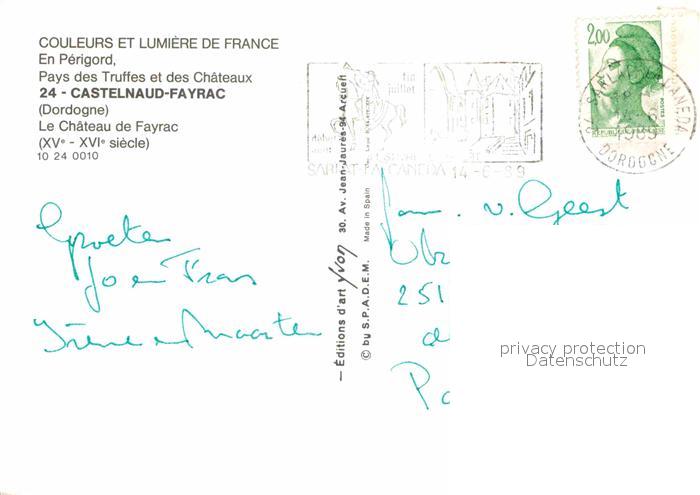 COULEURS ET LUMIÈRE DE FRANCE
En Périgord,
Pays des Truffes et des Châteaux
24 - CASTELNAUD-FAYRAC
(Dordogne)
Le Château de Fayrac
(XVᵉ - XVIᵉ siècle)
10 24 0010
Groeten
Jo en Frans
Irène en Maarten
— Éditions d'art yvon 30. Av. Jean-Jaurès-94-Arcueil
© by S.P.A.D.E.M. Made in Spain
fin
juillet
SARLAT-LA-CANEDA 14-6-89
2,00
POSTES
DORDOGNE
Fam. v. Geest
251
d
privacy protection
Datenschutz